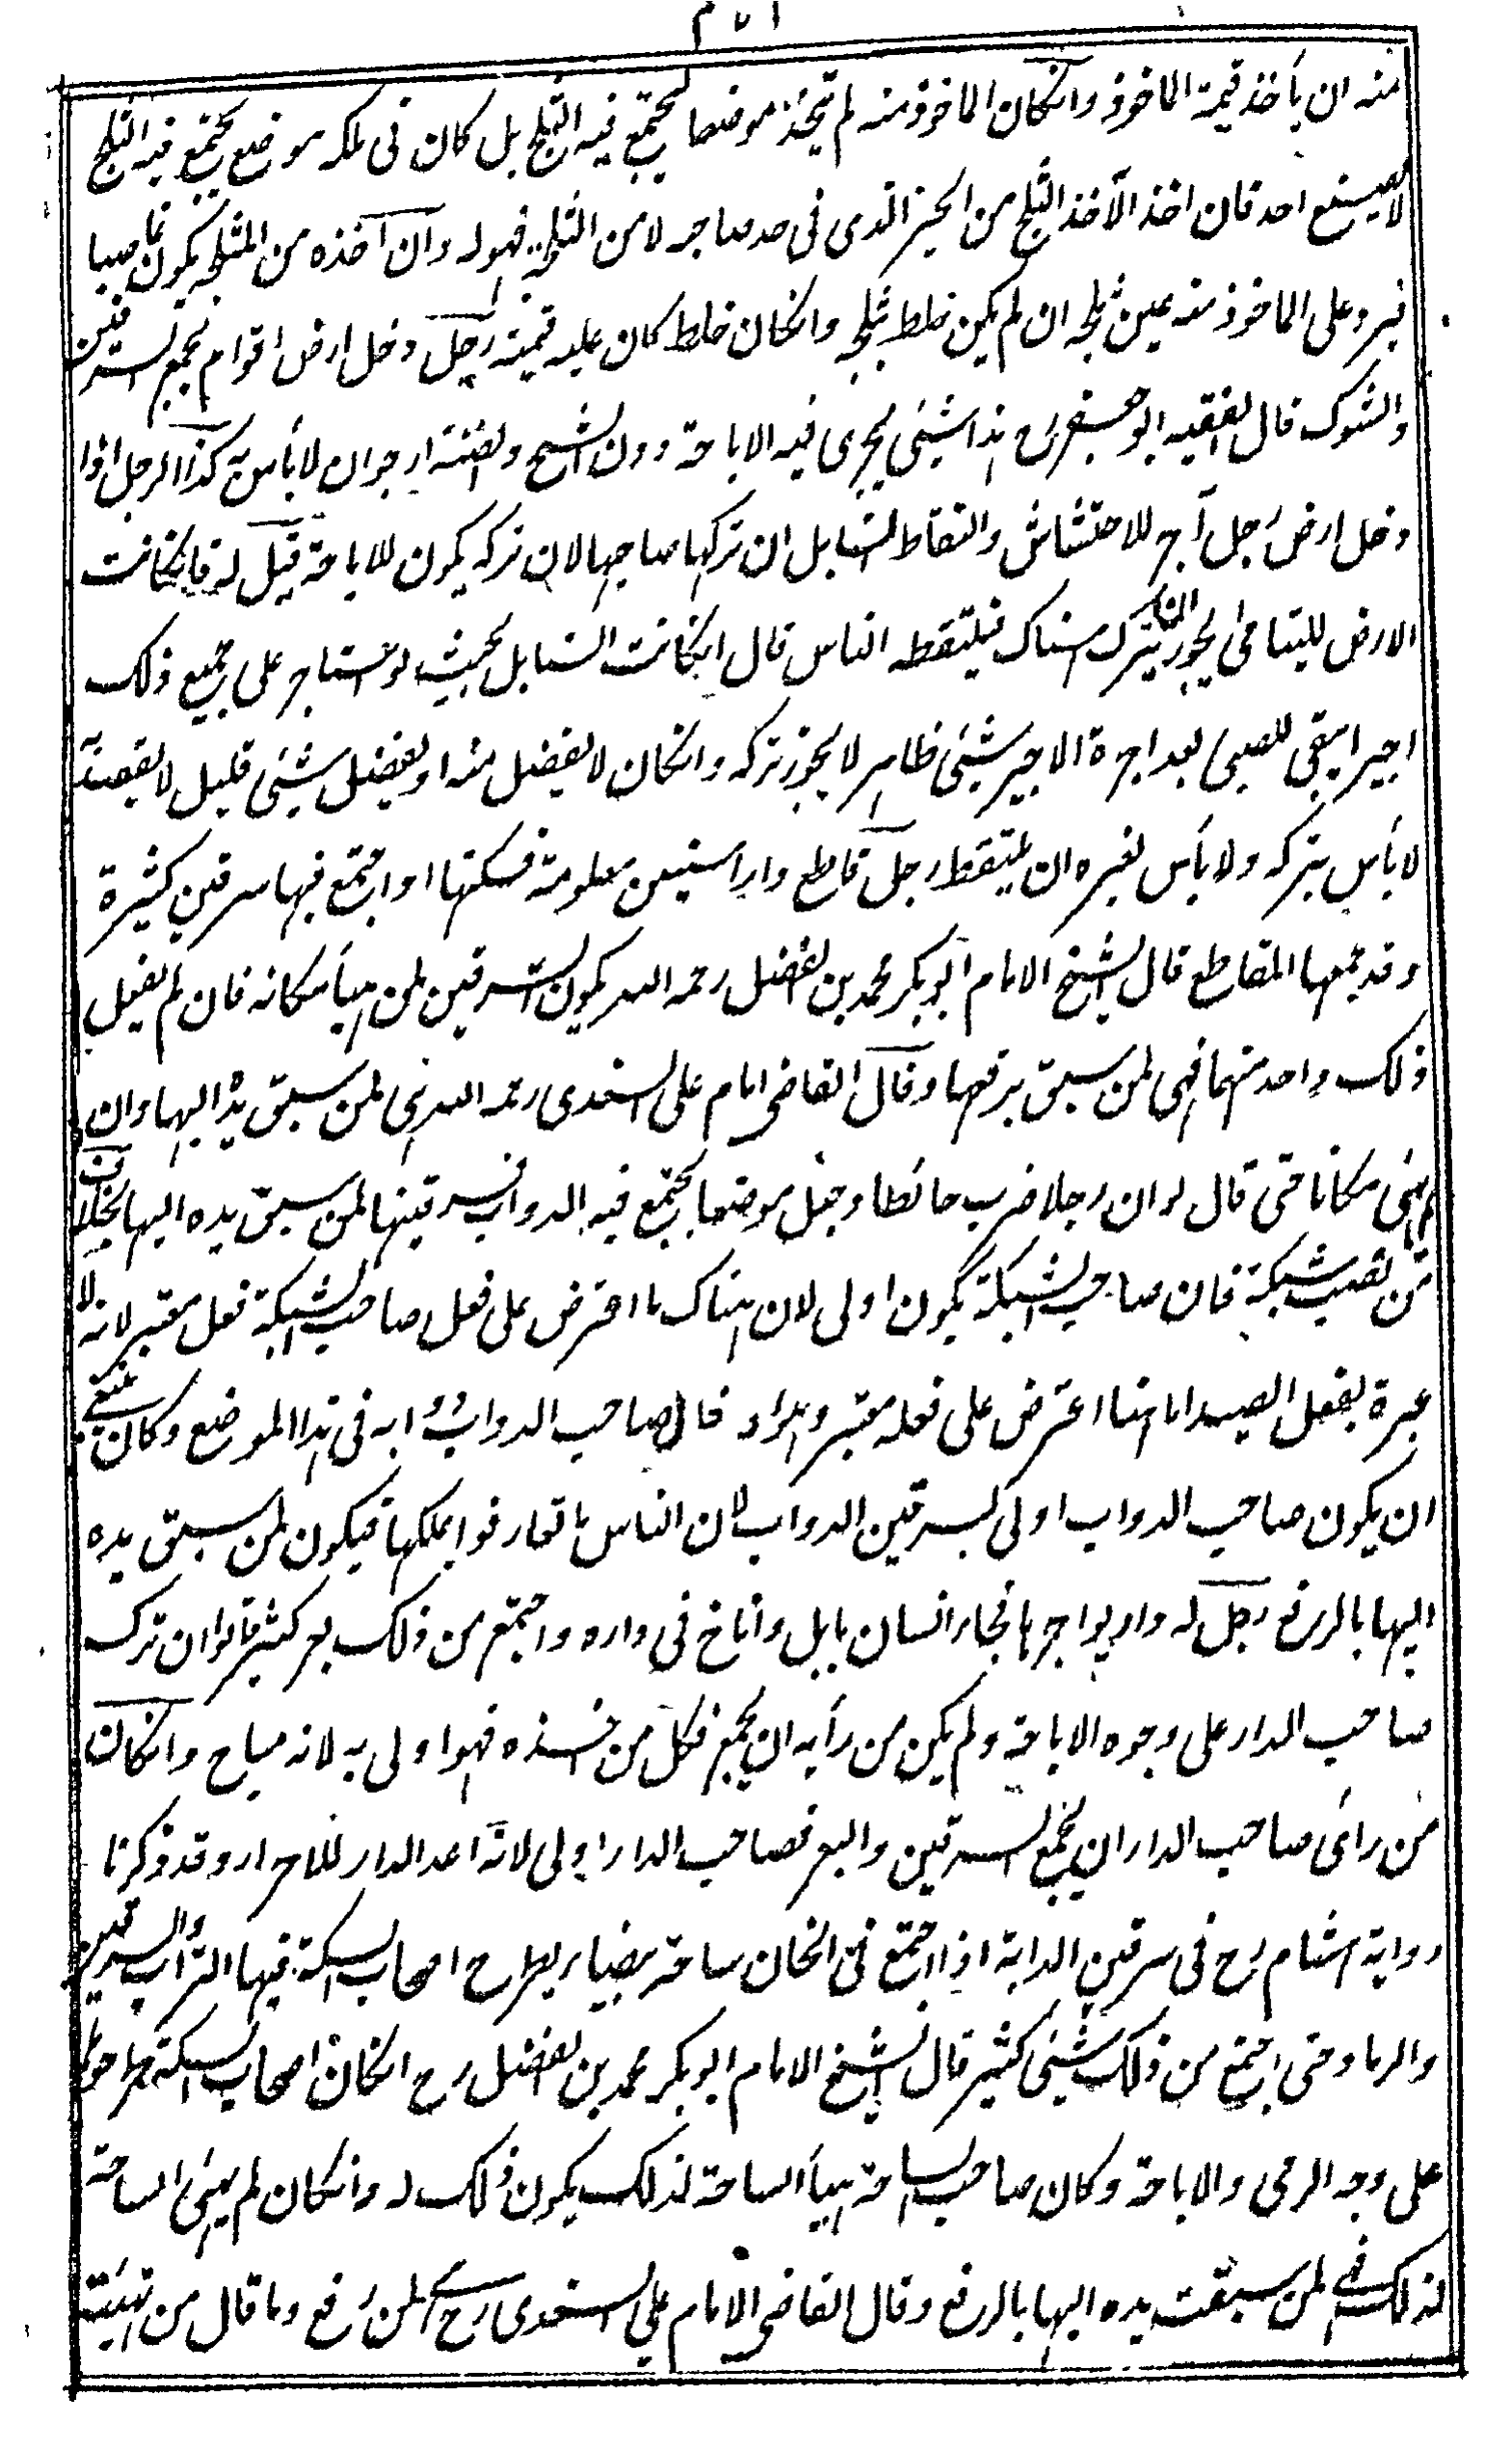 منه ان يأخذ قيمة الماخوذ وانكان الماخوذ منه لم يتخذ موضعا يجتمع فيه الثلج بل كان فى ملكه موضع يجتمع فيه الثلج
لا بصنع احد فان اخذ الآخذ الثلج من الحيز الذى فى حد صاحبه لا من المثلجة فهو له وان اخذه من المثلجة يكون غاصبا
فيرد على الماخوذ منه عين ثلجه ان لم يكن خلط بثلجه وانكان خلط كان عليه قيمته رجل دخل ارض اقوام يجمع السرقين
والشوك قال الفقيه ابو جعفر رح هذا شيئ يجرى فيه الاباحة دون الشح والضنة ارجو ان لا بأس به كذا الرجل اذا
دخل ارض رجل آخر للاحتشاش والتقاط السنابل ان تركها صاحبها لان تركه يكون للاباحة قيل له فانكانت
الارض لليتامى ايجوز ان يترك هناك فيلتقطه الناس قال انكانت السنابل بحيث لو استاجر على جميع ذلك
اجيرا يبقى للصبى بعد اجرة الاجير شيئ ظاهر لا يجوز تركه وانكان لا يفضل منه او يفضل شيئ قليل لا يقصد
لا بأس بتركه ولا بأس لغيره ان يلتقط رجل قاطع دارا سنين معلومة فسكنها او اجتمع فيها سرقين كثيرة
وقد جمعها المقاطع قال الشيخ الامام ابو بكر محمد بن الفضل رحمه الله يكون السرقين لمن هيأ مكانه فان لم يفعل
ذلك واحد منهما فهى لمن سبق برفعها وقال القاضى امام على السغدى رحمه الله هى لمن سبق يده اليها وان
لم يهيئ مكانا حتى قال لو ان رجلا ضرب حائطا وجعل موضعا يجتمع فيه الدواب فسرقينها لمن سبق يده اليها بخلاف
من نصب شبكة فان صاحب الشبكة يكون اولى لان هناك ما اعترض على فعل صاحب الشبكة فعل معتبر لانه لا
عبرة بفعل الصيد اما هنا اعترض على فعله معتبر وهو ادخال صاحب الدواب دوابه فى هذا الموضع وكان ينبغى
ان يكون صاحب الدواب اولى بسرقين الدواب لان الناس ما تعارفوا تملكها فيكون لمن سبق يده
اليها بالرفع رجل له دار يواجرها فجاء انسان بابل واناخ فى داره واجتمع من ذلك بعر كثير قالوا ان ترك
صاحب الدار على وجوه الاباحة ولم يكن من رأيه ان يجمع فكل من اخذه فهو اولى به لانه مباح وانكان
من رائ صاحب الدار ان يجمع السرقين والبعر فصاحب الدار اولى لانه اعد الدار للاحراز وقد ذكرنا
رواية هشام رح فى سرقين الدابة اذا اجتمع فى الخان ساحة بيضاء يطرح اصحاب السكة فيها التراب والسرقين
والرماد حتى اجتمع من ذلك شيئ كثير قال الشيخ الامام ابو بكر محمد بن الفضل رح انكان اصحاب السكة طرحوها
على وجه الرمى والاباحة وكان صاحب الساحة هيأ الساحة لذلك يكون ذلك له وانكان لم يهيئ الساحة
لذلك فهى لمن سبقت يده اليها بالرفع وقال القاضى الامام على السغدى رح هى لمن رفع وما قال من تهيئة